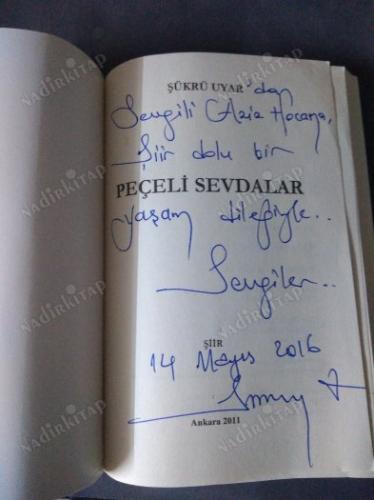 ŞÜKRÜ UYAR'dan
Sevgili Aziz Hocama,
Şiir dolu bir
PEÇELİ SEVDALAR
yaşam dileğiyle..
Sevgiler..
ŞİİR
14 Mayıs 2016
Ankara 2011
NADİRKİTAP